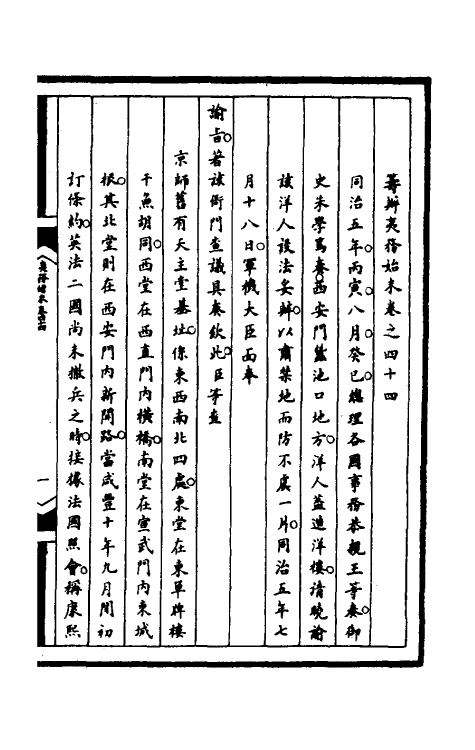 籌辦夷務始末卷之四十四
同治五年丙寅八月癸巳總理各國事務恭親王等奏御
史朱學篤奏西安門蠶池口地方洋人蓋造洋樓請曉諭
該洋人設法妥辦以肅禁地而防不虞一片同治五年七
月十八日軍機大臣面奉
諭旨著該衙門查議具奏欽此臣等查
京師舊有天主堂基址係東西南北四處東堂在東單牌樓
干魚胡同西堂在西直門內橫橋南堂在宣武門內東城
根其北堂則在西安門內新開路當咸豐十年九月間初
訂條約英法二國尚未撤兵之時接據法國照會稱康熙
夷務始末卷四十四
一